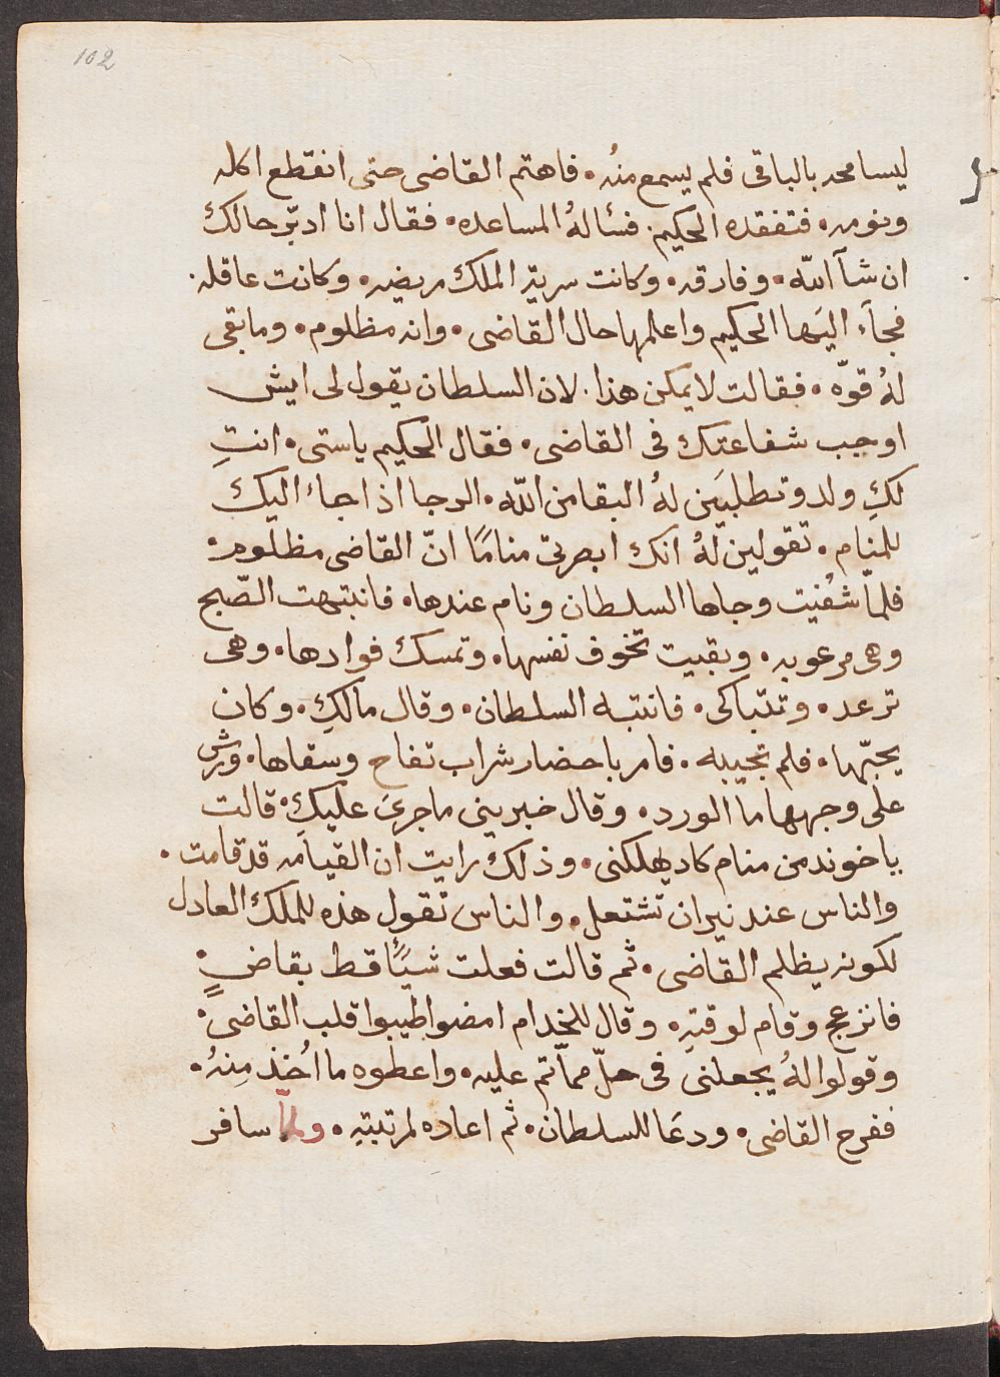 102
ليسامحه بالباقى فلم يسمع منهُ. فاهتم القاضى حتى انقطع اكله
ونومه. فتفقده الحكيم. فسٔالهُ المساعده. فقال انا ادبّر حالك
ان شآ الله. وفارقه. وكانت سرية الملك مريضه. وكانت عاقله.
فجاَء اليَها الحكيم واعلمها حال القاضى. وانه مظلوم. وما بقى
لهُ قوّه. فقالت لا يمكن هذا. لان السلطان يقول لى ايش
اوجب شفاعتك فى القاضى. فقال الحكيم ياستى. انتِ
لكِ ولد وتطلبيَن لهُ البقا من الله. الرجا اذا جاء اليك
للمنام. تقولين لهُ انك ابصرتى منامًا انّ القاضى مظلوم.
فلمّا شُفيت وجاها السلطان ونام عندها. فانتبهت الصّبح
وهى مرعوبه. وبقيت تخوف نفسها. وتمسك فوادها. وهى
ترعد. وتتباكى. فانتبه السلطان. وقال مالكِ. وكان
يحبّها. فلم تجيبه. فامر باحضار شراب تفاح وسقاها. ورش
على وجهها ما الورد. وقال خبرينى ما جرىَ عليكِ. قالت
ياخوند من منام كاد يهلكنى. وذلك رايت ان القيامه قد قامت.
والناس عند نيران تشتعل. والناس تقول هذه للملك العادل
لكونه يظلم القاضى. ثم قالت فعلت شيئًا قط بقاضٍ.
فانزعج وقام لوقتهِ. وقال للخدام امضوا طيبوا قلب القاضى.
وقولوا لهُ يجعلنى فى حلّ مماّ تم عليه. واعطوه ما اُخذ مِنهُ.
ففرح القاضى. ودعَا للسلطان. ثم اعاده لمرتبتهِ. ولمّا سافر